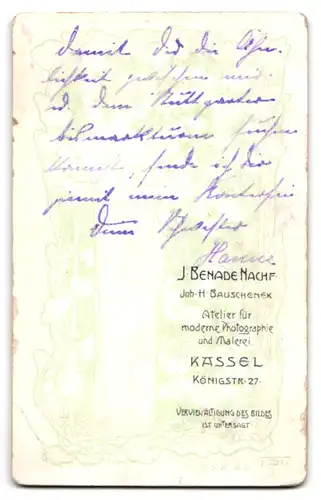 damit Du die Ähn-
lichkeit zwischen mir
u. dem Stuttgarter
bismarkturm
kannst, sende ich dir
somit mein Konterfei
Deine Schwester
Hanne
J. BENADE NACHF.
Joh. H. BAUSCHENEK
Atelier für
moderne Photographie
und Malerei.
KASSEL
KÖNIGSTR. 27.
VERVIELFÄLTIGUNG DES BILDES
IST UNTERSAGT